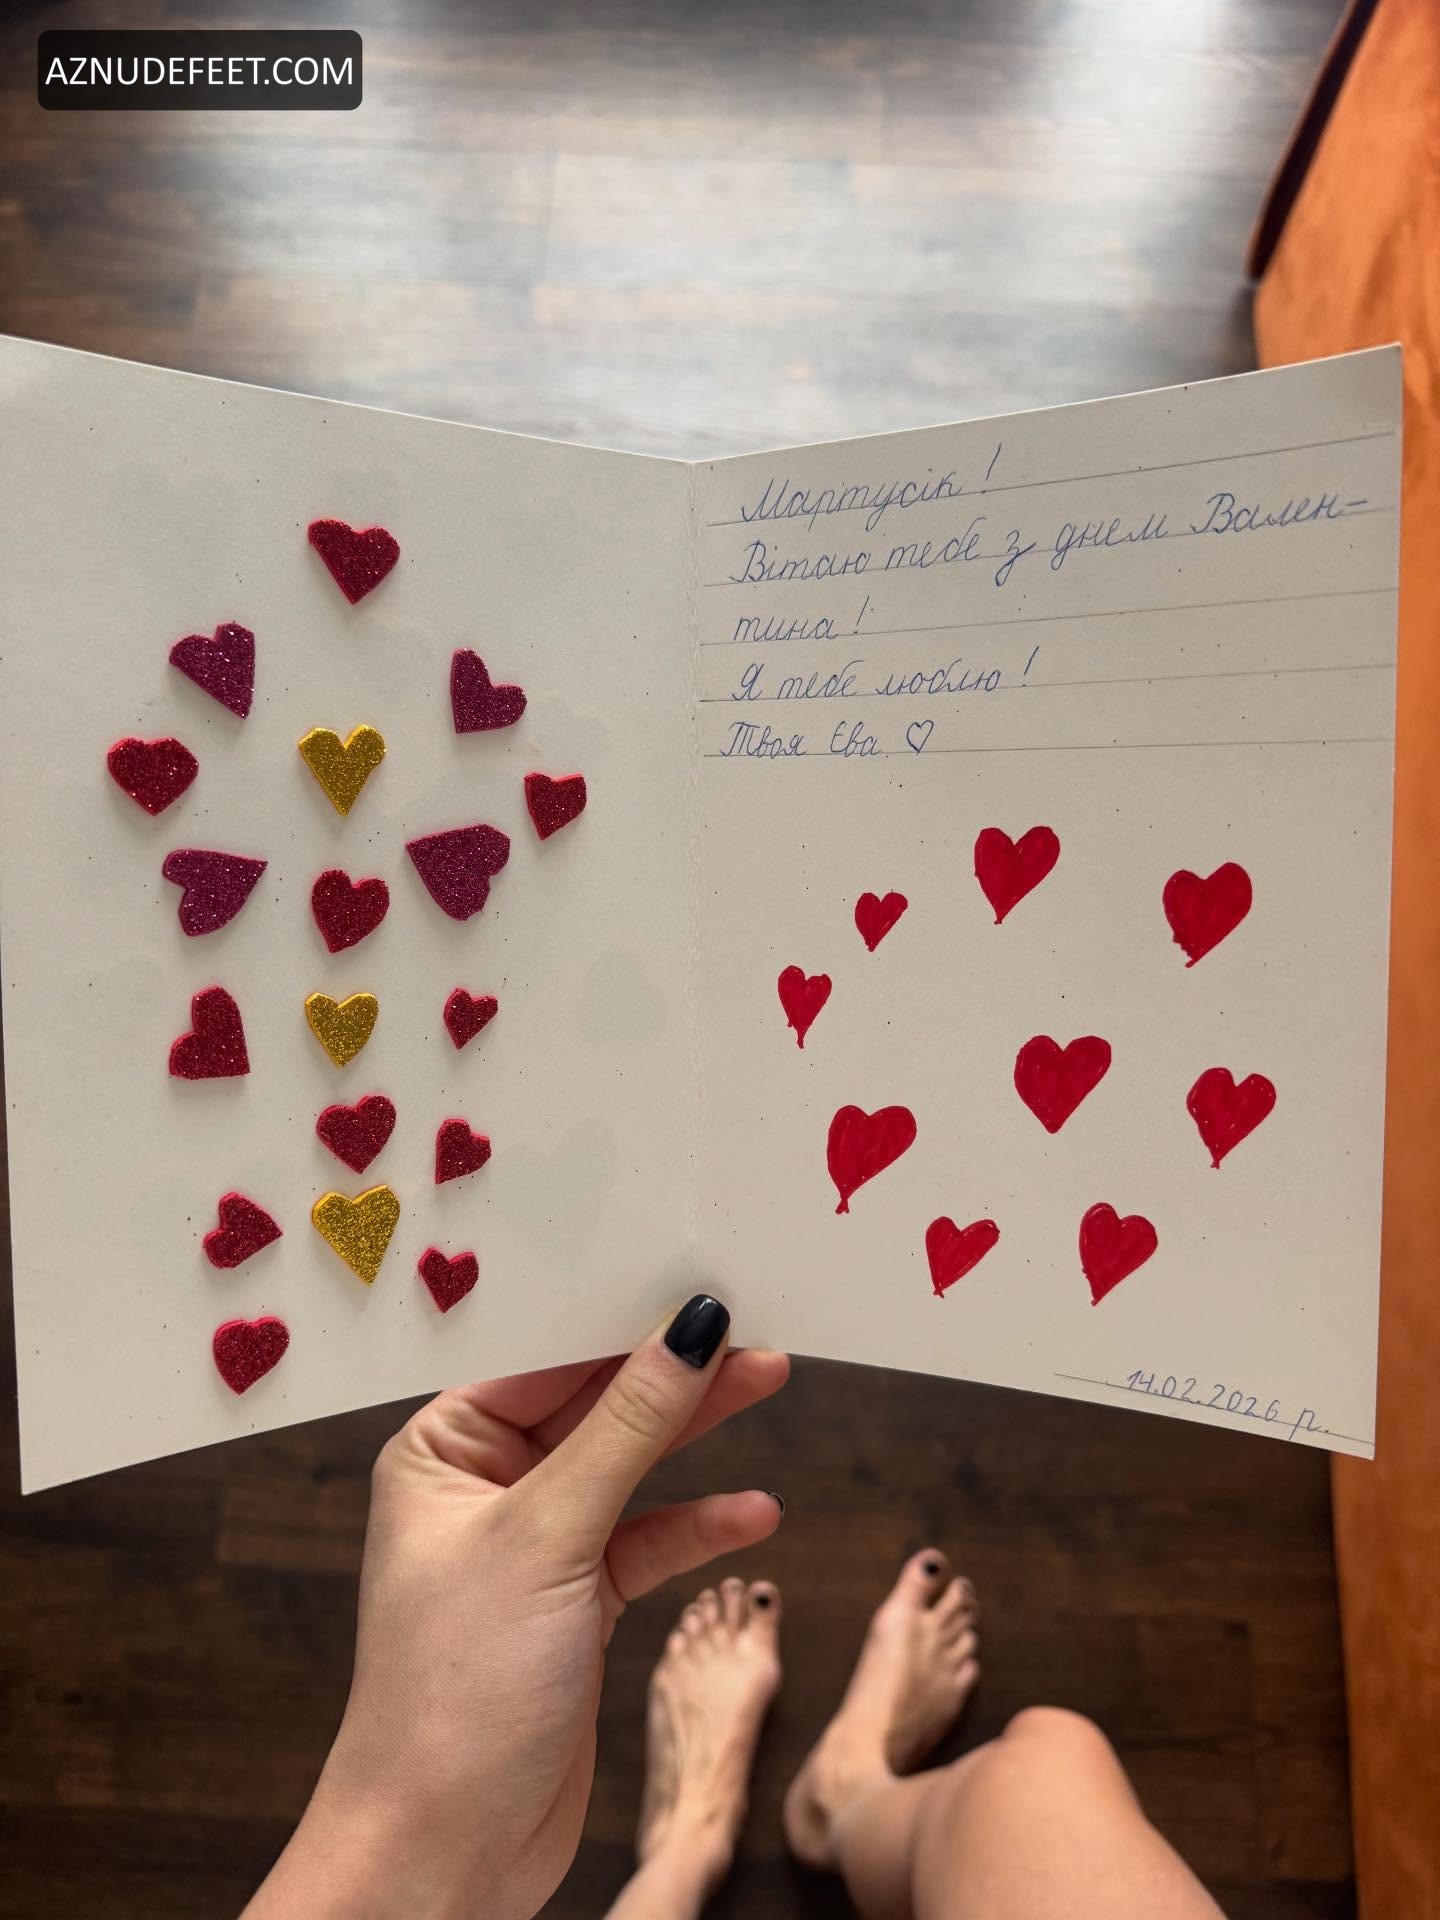 AZNUDEFEET.COM
Мартусік!
Вітаю тебе з днем Вален-
тина!
Я тебе люблю!
Твоя Єва ♡
14.02.2026 р.